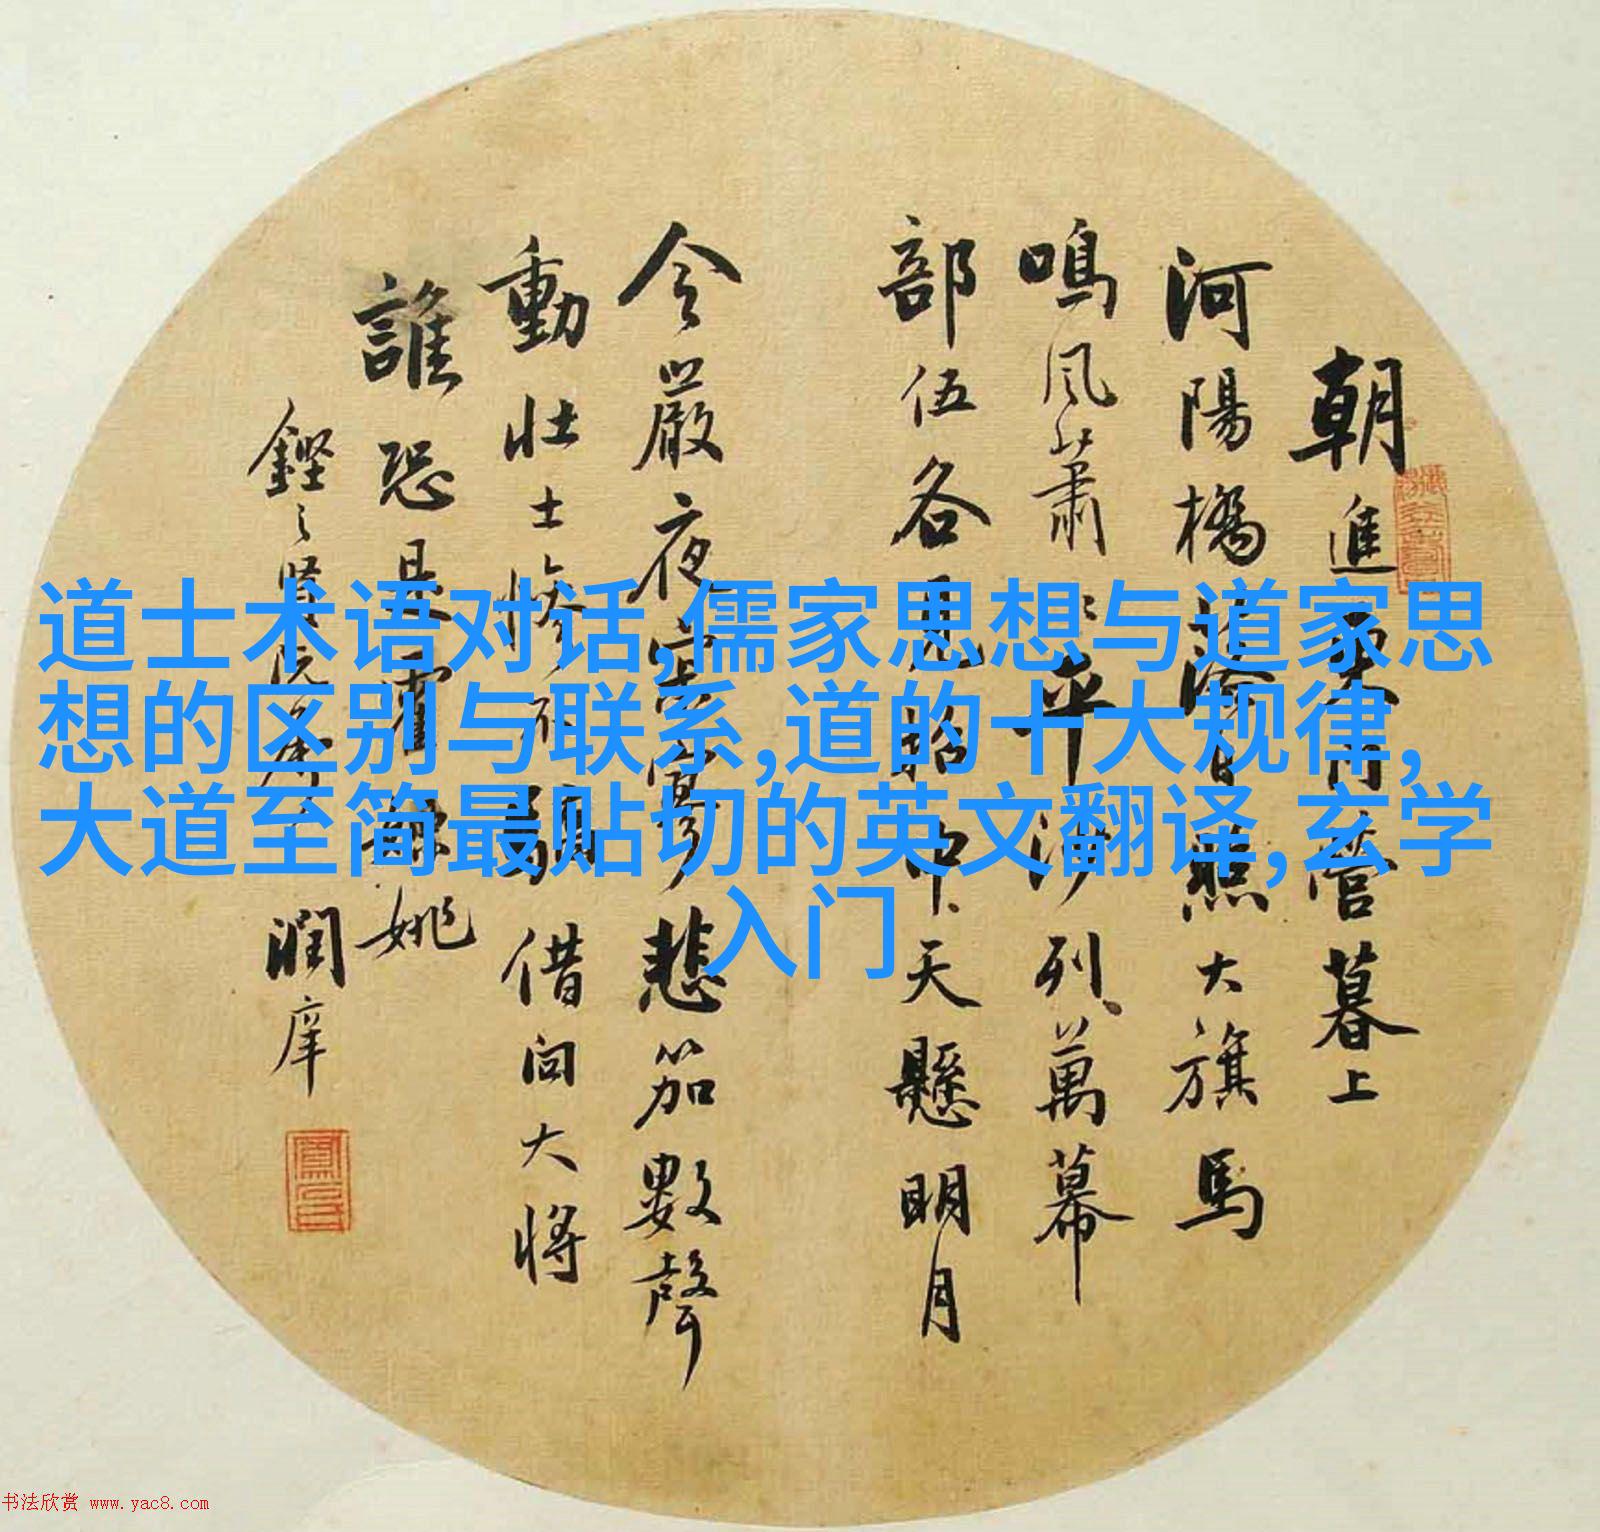 道士术语对话,儒家思想与道家思
想的区别与联系,道的十大规律,
大道至简最贴切的英文翻译,玄学
入门
朝進東門營暮上
河陽橋落日照大旗馬
鳴風蕭〻平沙列萬幕
部伍各見招中天懸明月
令嚴夜寂寥悲笳數聲
動壯士慘不驕借问大將
誰恐是霍嫖姚
鏗之賢阮屬 潤庠
书法欣赏 www.yac8.com